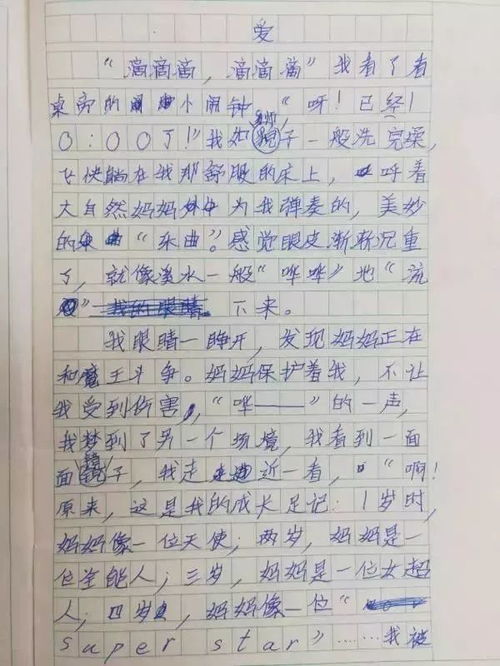 爱
“滴滴滴，滴滴滴”我看了看
桌旁的小闹钟，“呀！已经1
0:00了！”我如兔子一般洗完澡，
飞快躺在我那舒服的床上，呼着
大自然妈妈为我弹奏的，美妙
的“乐曲”。感觉眼皮渐渐沉重
了，就像溪水一般“哗哗”地“流
”下来。
我眼睛一睁开，发现妈妈正在
和魔王斗争。妈妈保护着我，不让
我受到伤害，“哗——”的一声，
我梦到了另一个场境，我看到一面
面镜子，我走近一看，“啊！
原来，这是我的成长足记：1岁时，
妈妈像一位天使；两岁，妈妈是一
位全能人；三岁，妈妈是一位女超
人；四岁，妈妈像一位“
super star”……我被